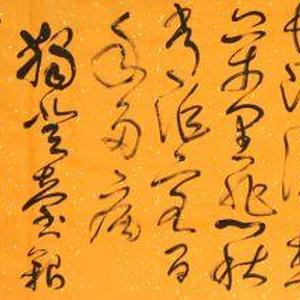 万里悲秋
常作客百
年多病
獨登臺艱